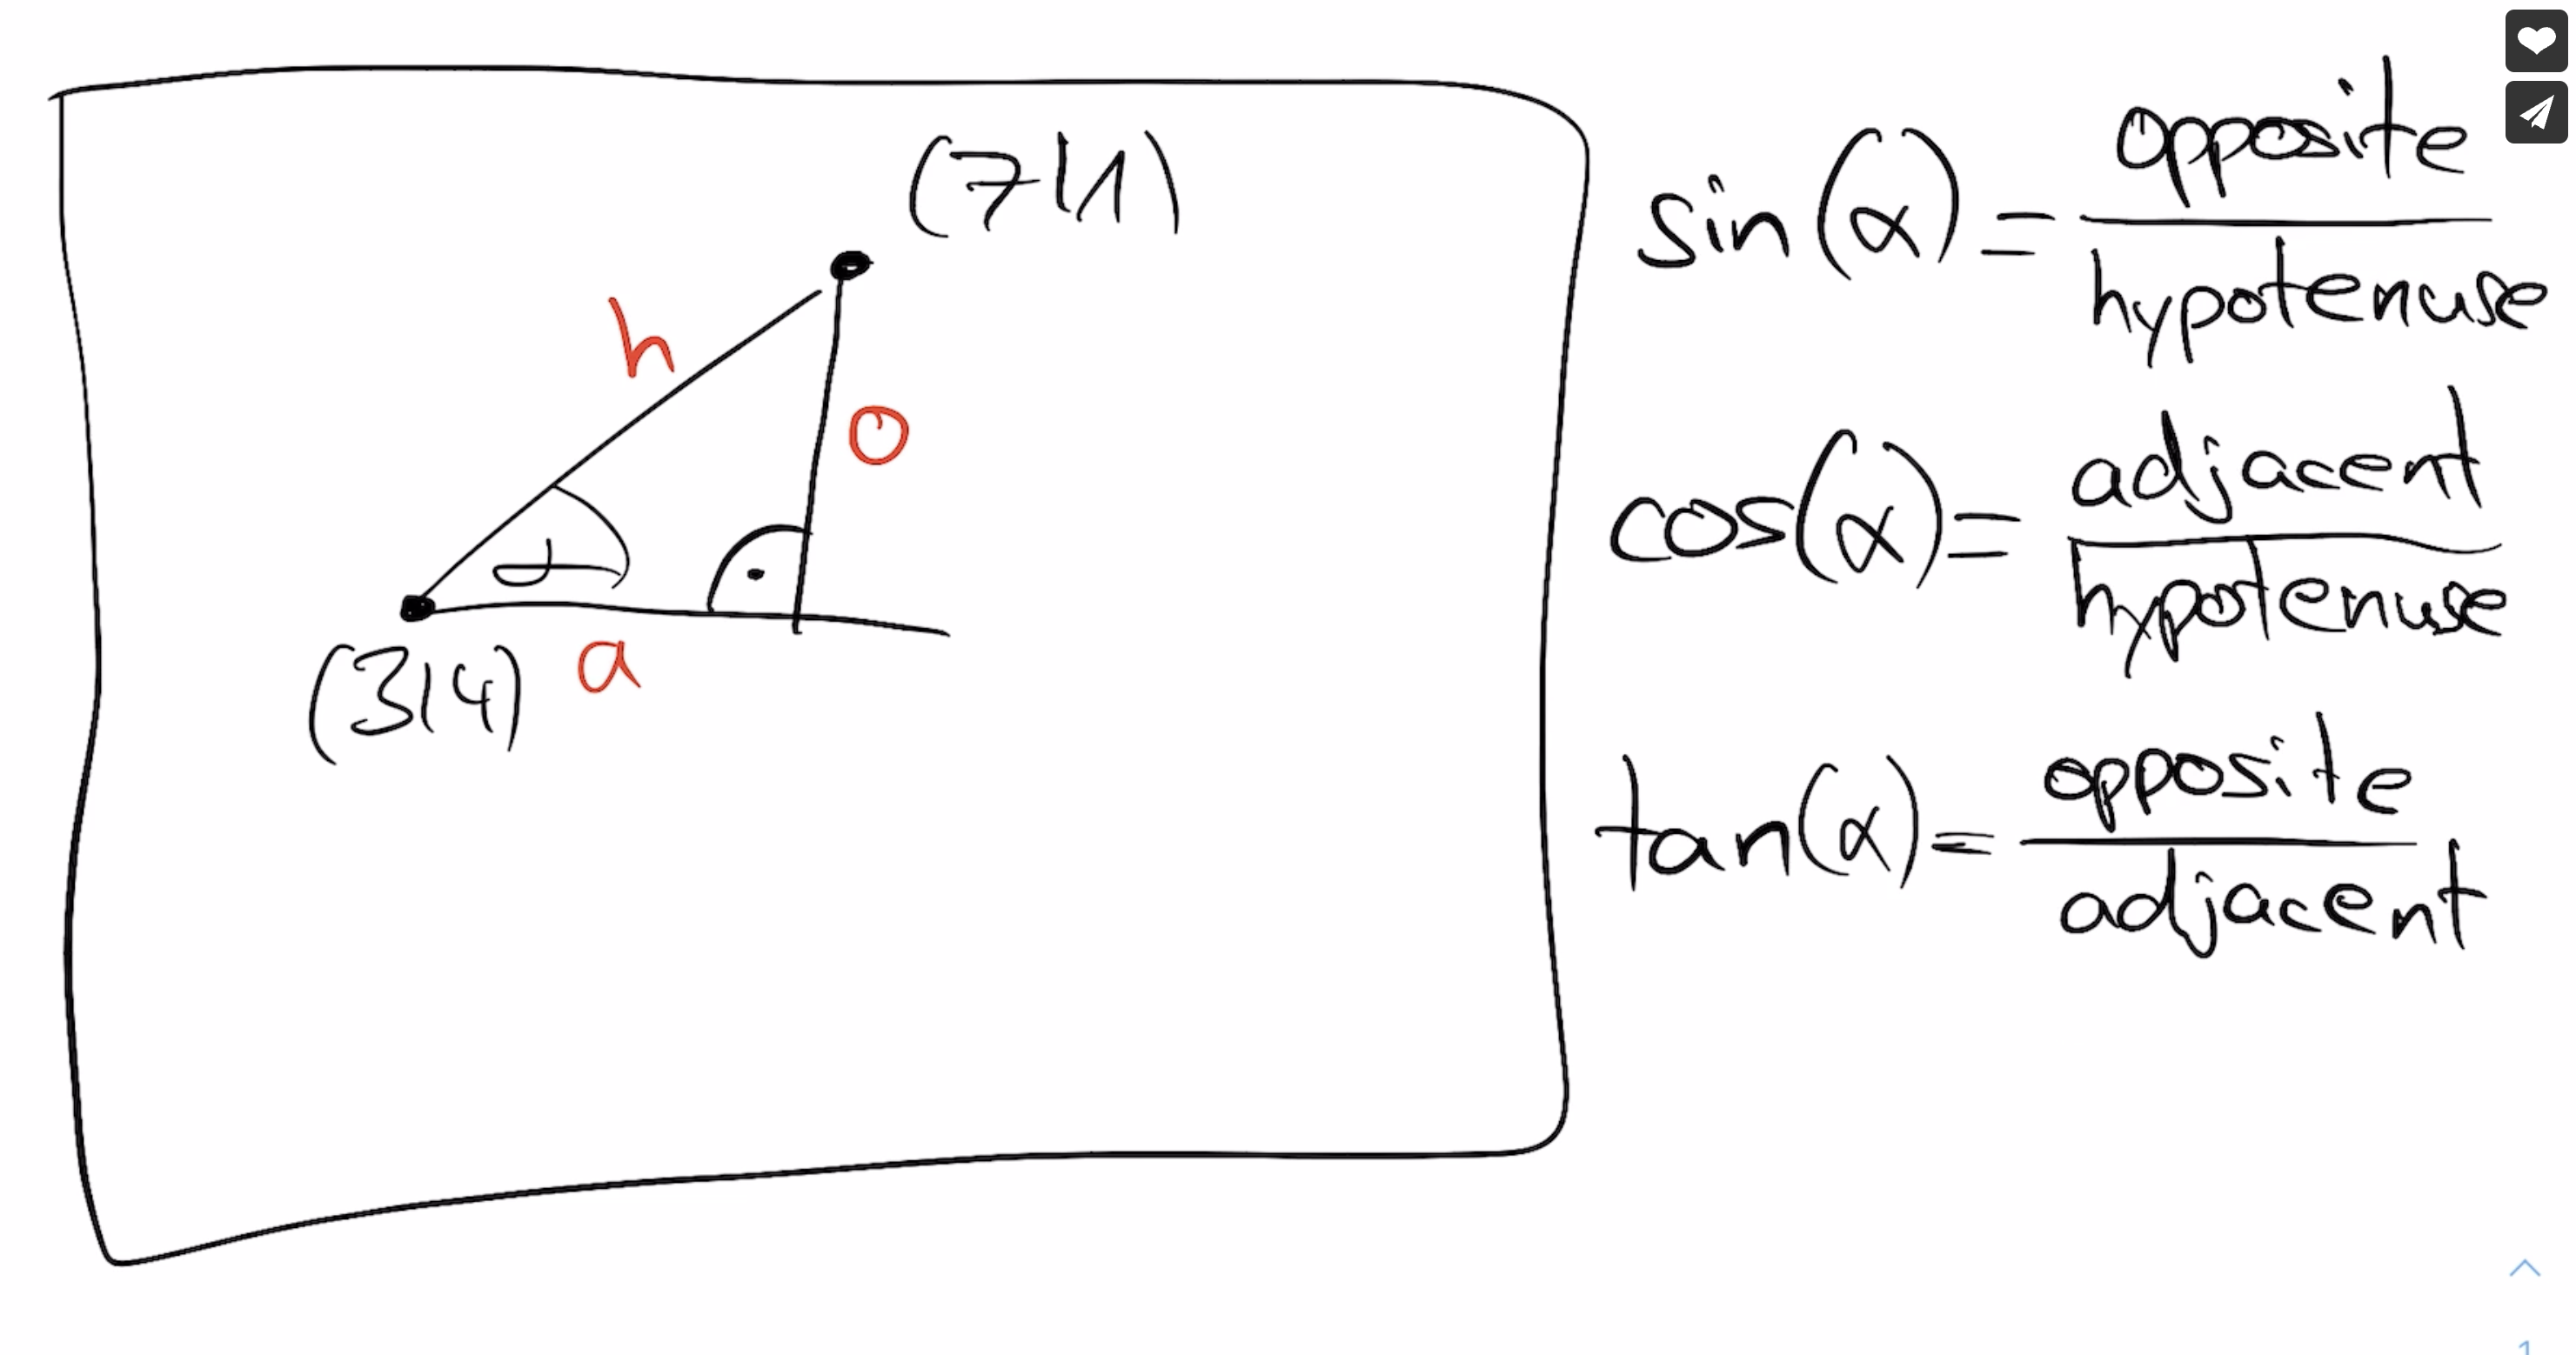 (7|1)
h
o
α
(3|4)
a
sin(α) = opposite
hypotenuse
cos(α) = adjacent
hypotenuse
tan(α) = opposite
adjacent